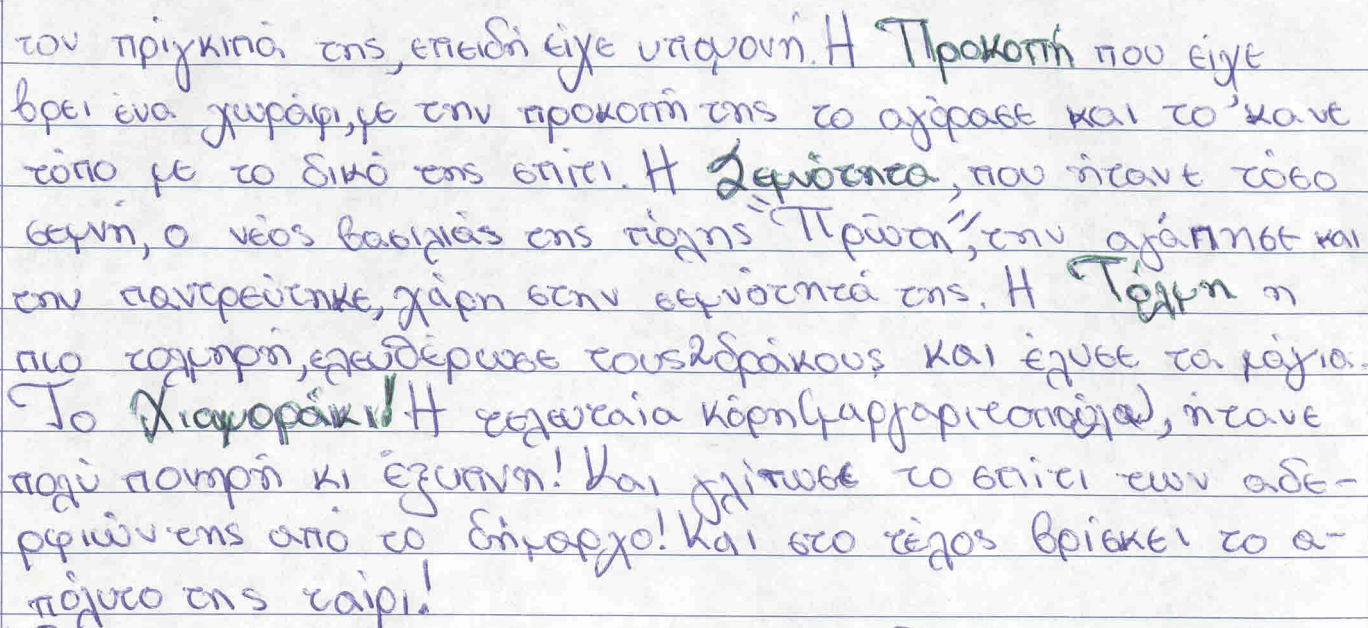 τον πρίγκιπά της, επειδή είχε υπομονή. Η Προκοπή που είχε
βρει ένα χωράφι, με την προκοπή της το αγόρασε και το 'κανε
τόπο με το δικό της σπίτι. Η Σεμνότητα, που ήτανε τόσο
σεμνή, ο νέος βασιλιάς της πόλης "Πρώτη", την αγάπησε και
την παντρεύτηκε, χάρη στην σεμνότητά της. Η Τόλμη η
πιο τολμηρή, ελευθέρωσε τους 2 δράκους και έλυσε τα μάγια.
Το Χιαμοράκι! Η τελευταία κόρη (μαργαριτοπούλα), ήτανε
πολύ πονηρή κι έξυπνη! Και γλίτωσε το σπίτι των αδε-
ρφιών της από το δήμαρχο! Και στο τέλος βρίσκει το α-
πόλυτο της ταίρι!